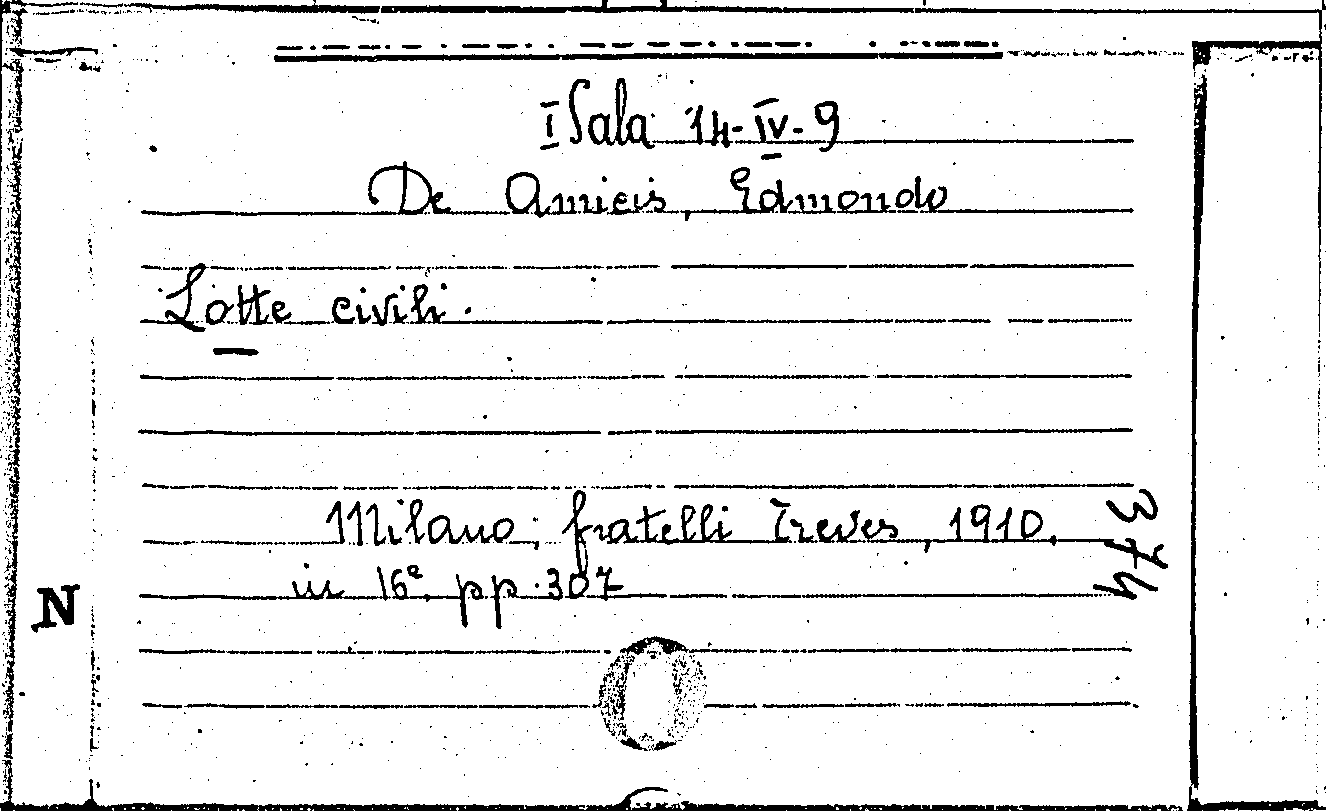 I Sala 14-IV-9
De Amicis, Edmondo
Lotte civili.
Milano, fratelli Treves, 1910.
in 16º pp. 307
374
N